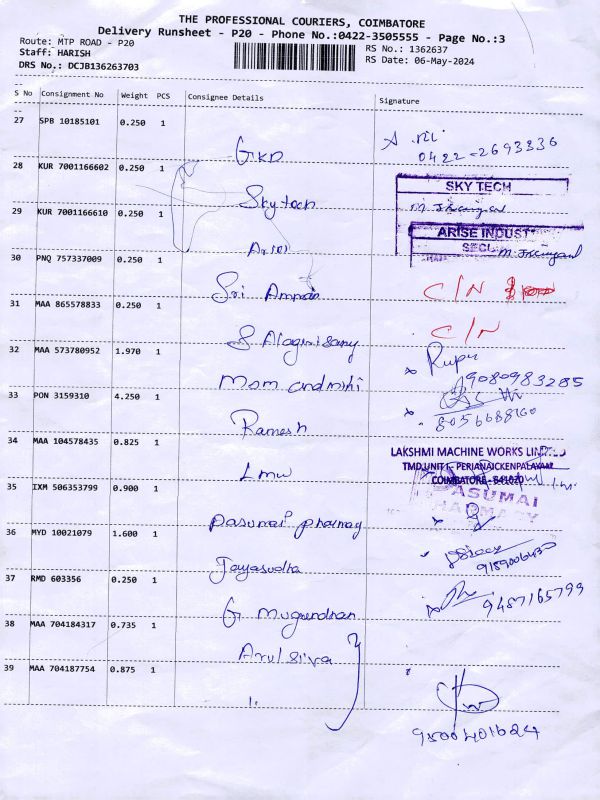 THE PROFESSIONAL COURIERS, COIMBATORE
Delivery Runsheet - P20 - Phone No.:0422-3505555 - Page No.:3
Route: MTP ROAD - P20
RS No.: 1362637
Staff: HARISH
RS Date: 06-May-2024
DRS No.: DCJB136263703
S No Consignment No Weight PCS Consignee Details Signature
27 SPB 10185101 0.250 1
GKD
0422-2693336
28 KUR 7001166602 0.250 1
Skytech
SKY TECH
29 KUR 7001166610 0.250 1
ARISE INDUST
30 PNQ 757337009 0.250 1
Sri Amman
C/N
31 MAA 865578833 0.250 1
C/N
32 MAA 573780952 1.970 1
9080983285
33 PON 3159310 4.250 1
Ramesh
34 MAA 104578435 0.825 1
LMW
LAKSHMI MACHINE WORKS LIMITED
TMD UNIT I - PERIANAICKENPALAYAM
COIMBATORE - 641020
35 IXM 506353799 0.900 1
PASUMAI
PHARMACY
36 MYD 10021079 1.600 1
Jayasudha
37 RMD 603356 0.250 1
9487165799
38 MAA 704184317 0.735 1
Arul Siva
39 MAA 704187754 0.875 1
"
9500401624